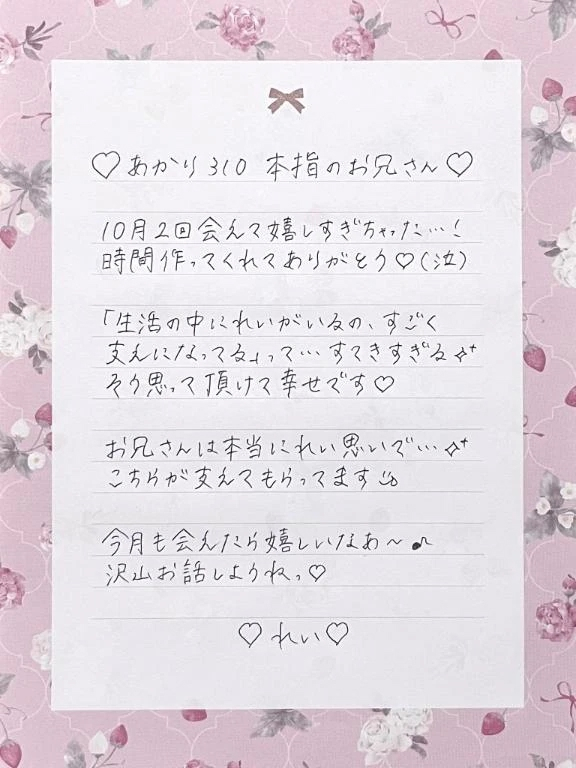 ♡あかり310 本指のお兄さん♡
10月2回会えて嬉しすぎちゃった…!
時間作ってくれてありがとう♡(泣)
「生活の中にれいがいるの、すごく
支えになってる」って…すてきすぎる✧⁺
そう思って頂けて幸せです♡
お兄さんは本当にれい思いで…✧⁺
こちらが支えてもらってます
今月も会えたら嬉しいなあ〜♪
沢山お話しようねっ♡
♡れい♡